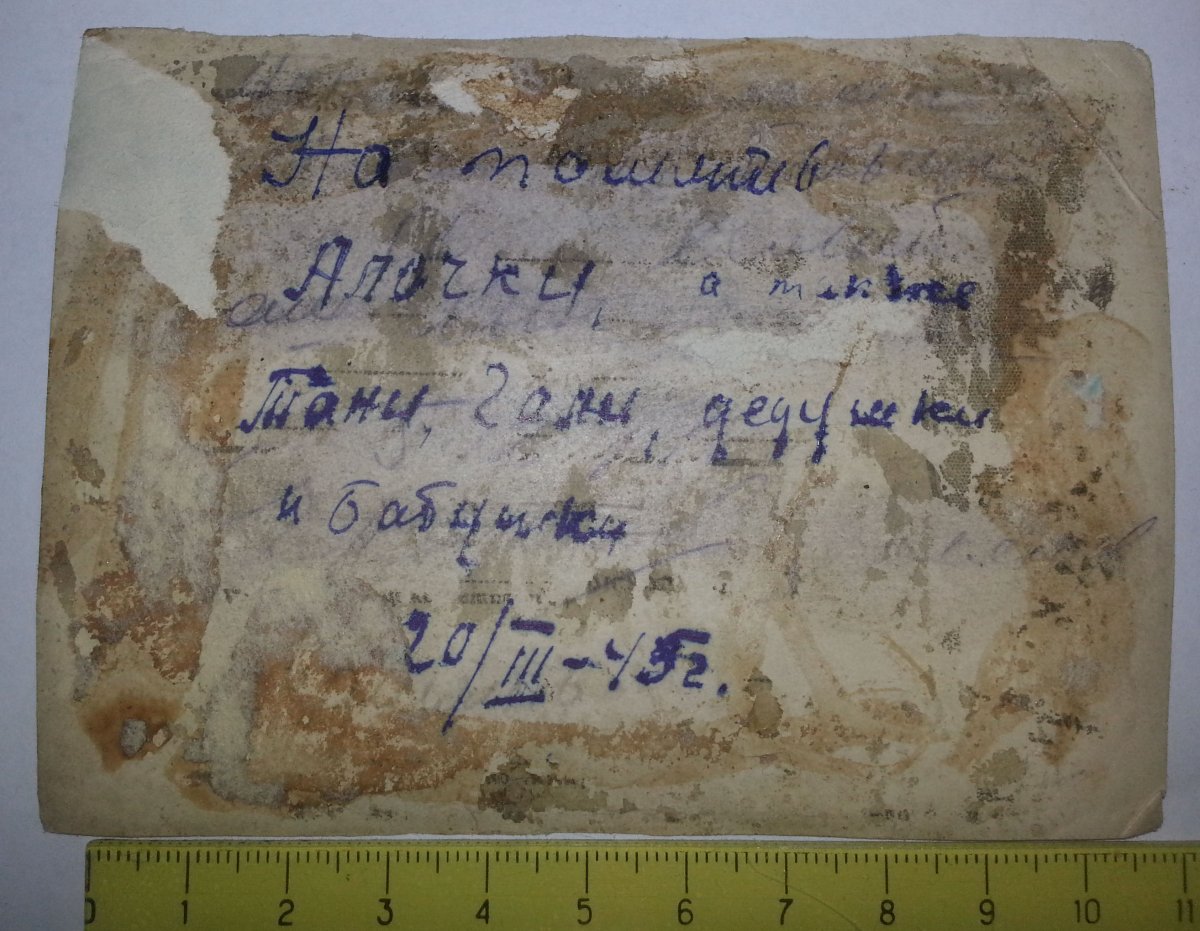 На память
Алочки, а также
Тани, Гали, дедушки
и бабушки
20/III-45г.
0 1 2 3 4 5 6 7 8 9 10 11